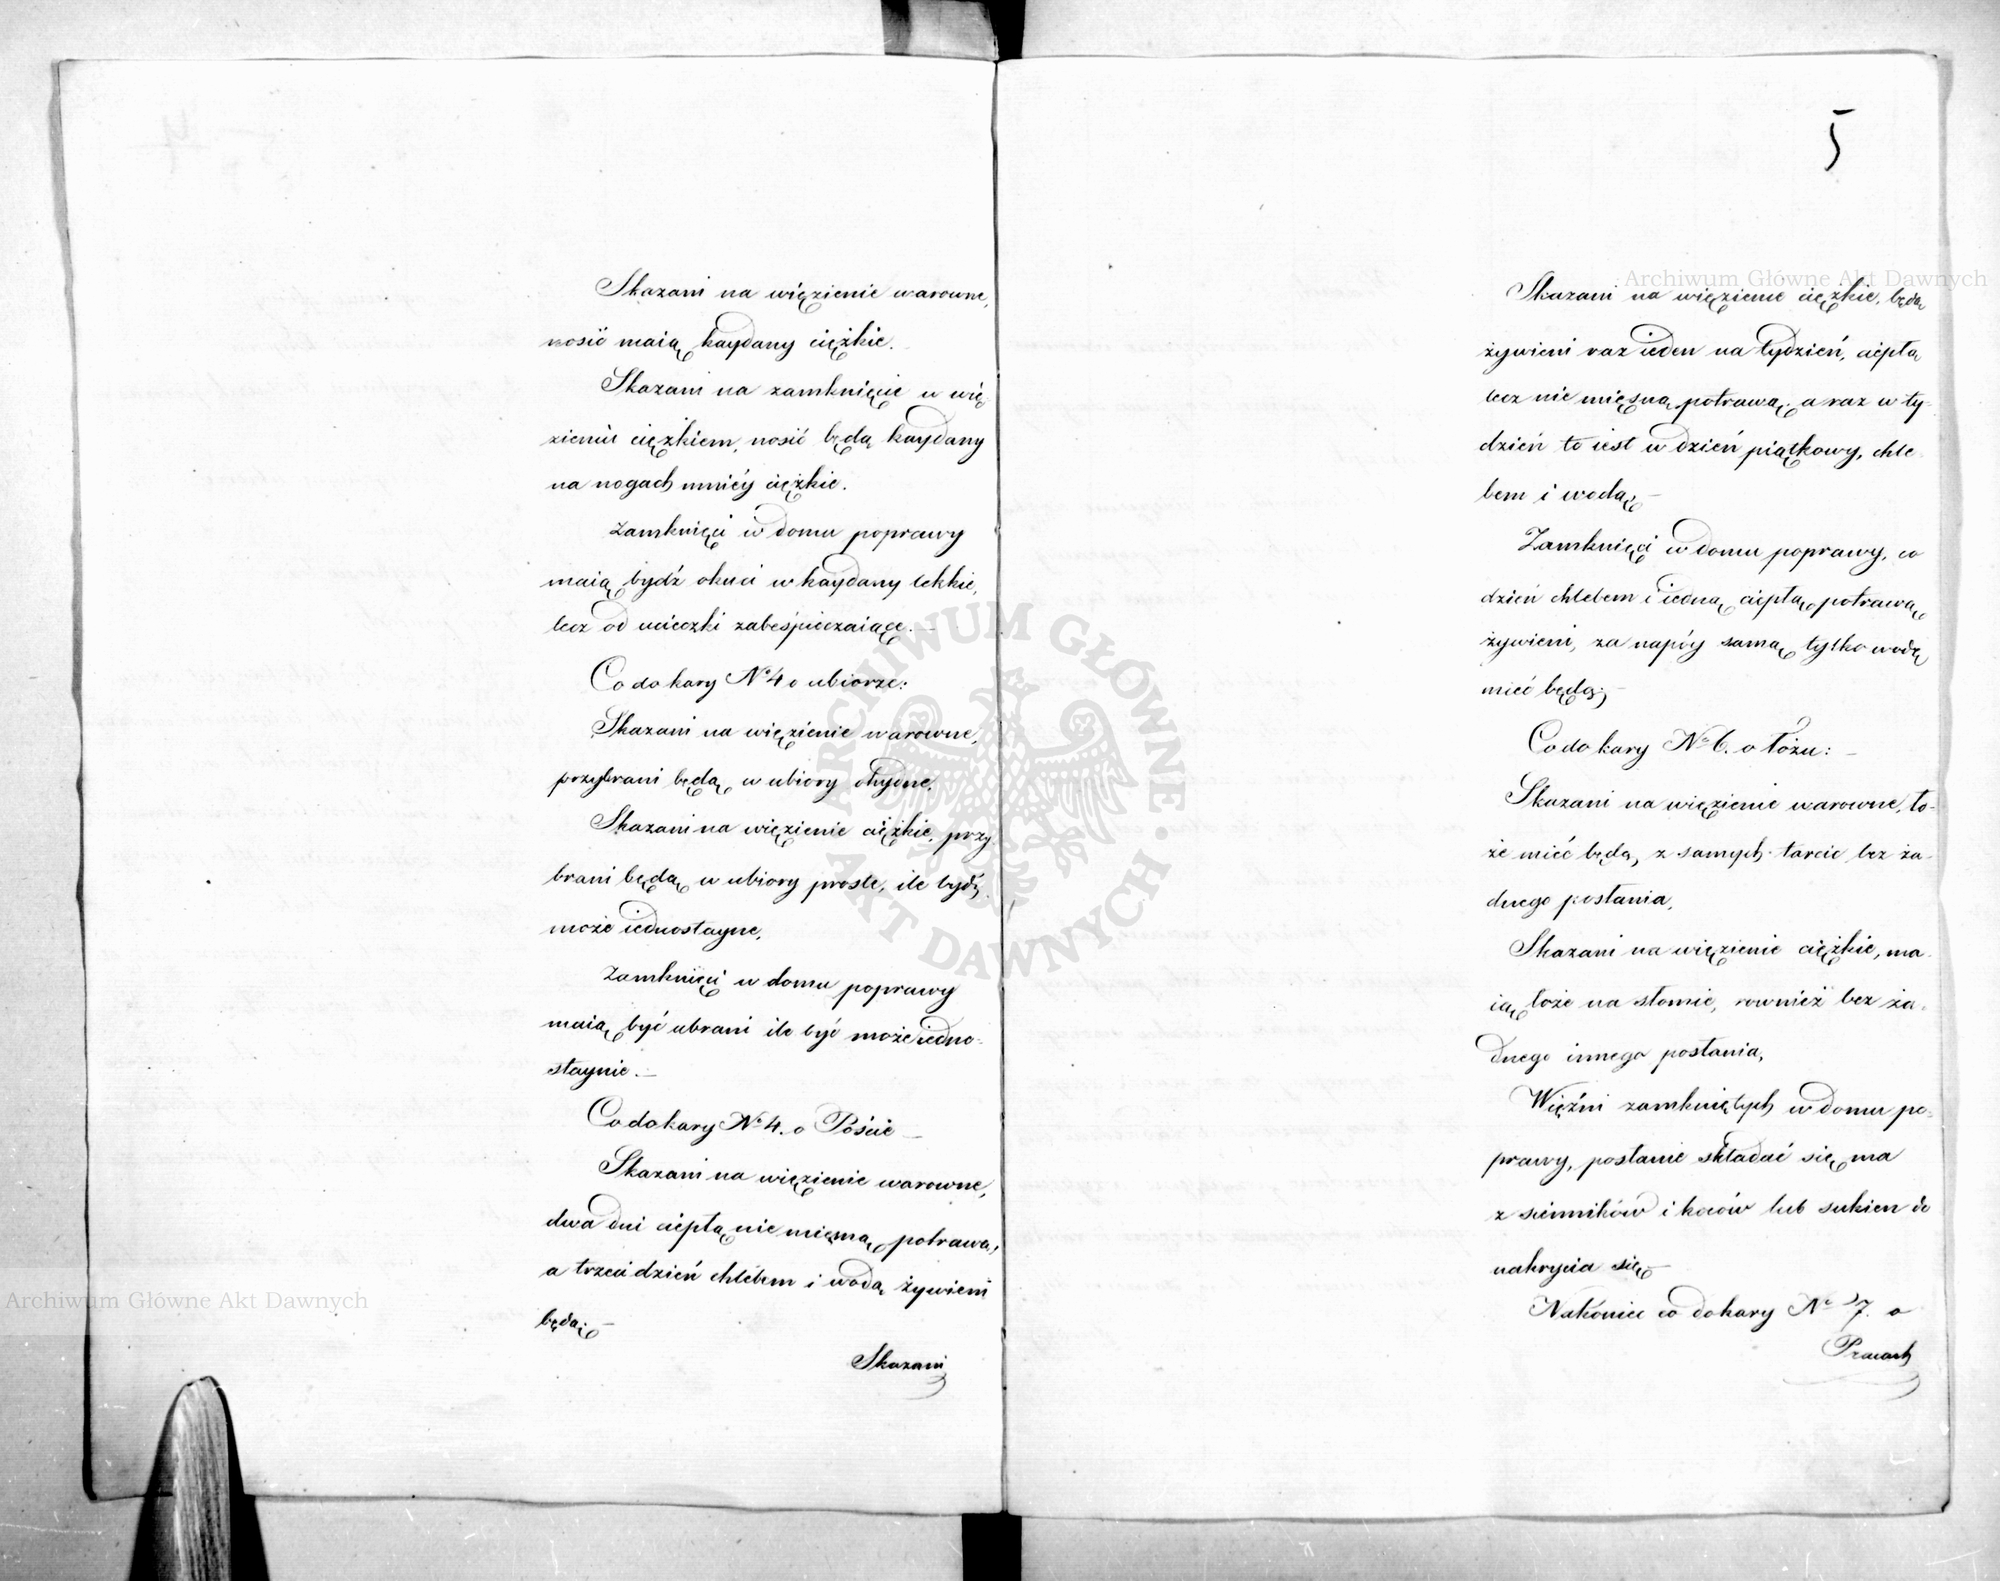 Skazani na więzienie warowne,
nosić maią kaydany ciężkie.
Skazani na zamknięcie w wię
zieniu ciężkiem, nosić będą kaydany
na nogach mniéy ciężkie.
Zamknięci w domu poprawy
maią bydź okuci w kaydany lekkie,
lecz od ucieczki zabespieczaiące. —
Co do kary Nº 4 o ubiorze:
Skazani na więzienie warowne,
przybrani będą w ubiory ohydne.
Skazani na więzienie ciężkie, przy
brani będą w ubiory proste, ile bydź
może iednostayne.
Zamknięci w domu poprawy
maią być ubrani ile być może iedno-
staynie. —
Co do kary Nº 4. o Poście —
Skazani na więzienie warowne,
dwa dni ciepłą nie mięsną potrawą,
a trzeci dzień chlebem i wodą żywieni
będą; —
Skazani
5
Skazani na więzienie ciężkie, będą
żywieni raz ieden na tydzień, ciepłą
lecz nie mięsną potrawą, a raz w ty-
dzień to iest w dzień piątkowy, chle-
bem i wodą; —
Zamknięci w domu poprawy, co
dzień chlebem i iedną ciepłą potrawą
żywieni, za napóy samą tylko wodę
mieć będą; —
Co do kary Nº 6. o łożu: —
Skazani na więzienie warowne, ło-
że mieć będą, z samych tarcic bez ża-
dnego posłania,
Skazani na więzienie ciężkie, ma-
ią łoże na słomie, rownież bez ża-
dnego innego posłania,
Więźni zamkniętych w domu po-
prawy, posłanie składać się ma
z sienników i koców lub sukien do
nakrycia się —
Nakoniec co do kary Nº 7. o
Pracach
Archiwum Główne Akt Dawnych
Archiwum Główne Akt Dawnych
ARCHIWUM GŁÓWNE AKT DAWNYCH